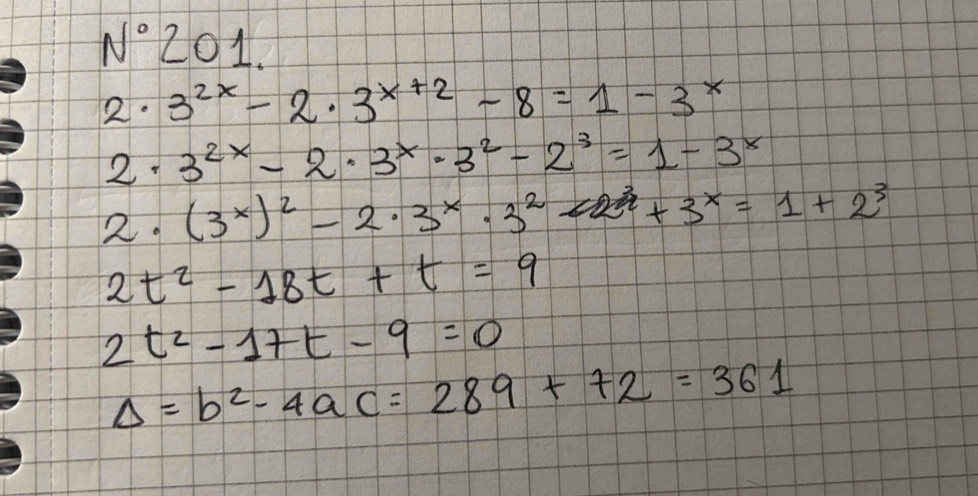 N°201.
2 · 3²ˣ - 2 · 3ˣ⁺² - 8 = 1 - 3ˣ
2 · 3²ˣ - 2 · 3ˣ · 3² - 2³ = 1 - 3ˣ
2 · (3ˣ)² - 2 · 3ˣ · 3² + 3ˣ = 1 + 2³
2t² - 18t + t = 9
2t² - 17t - 9 = 0
Δ = b² - 4ac = 289 + 72 = 361